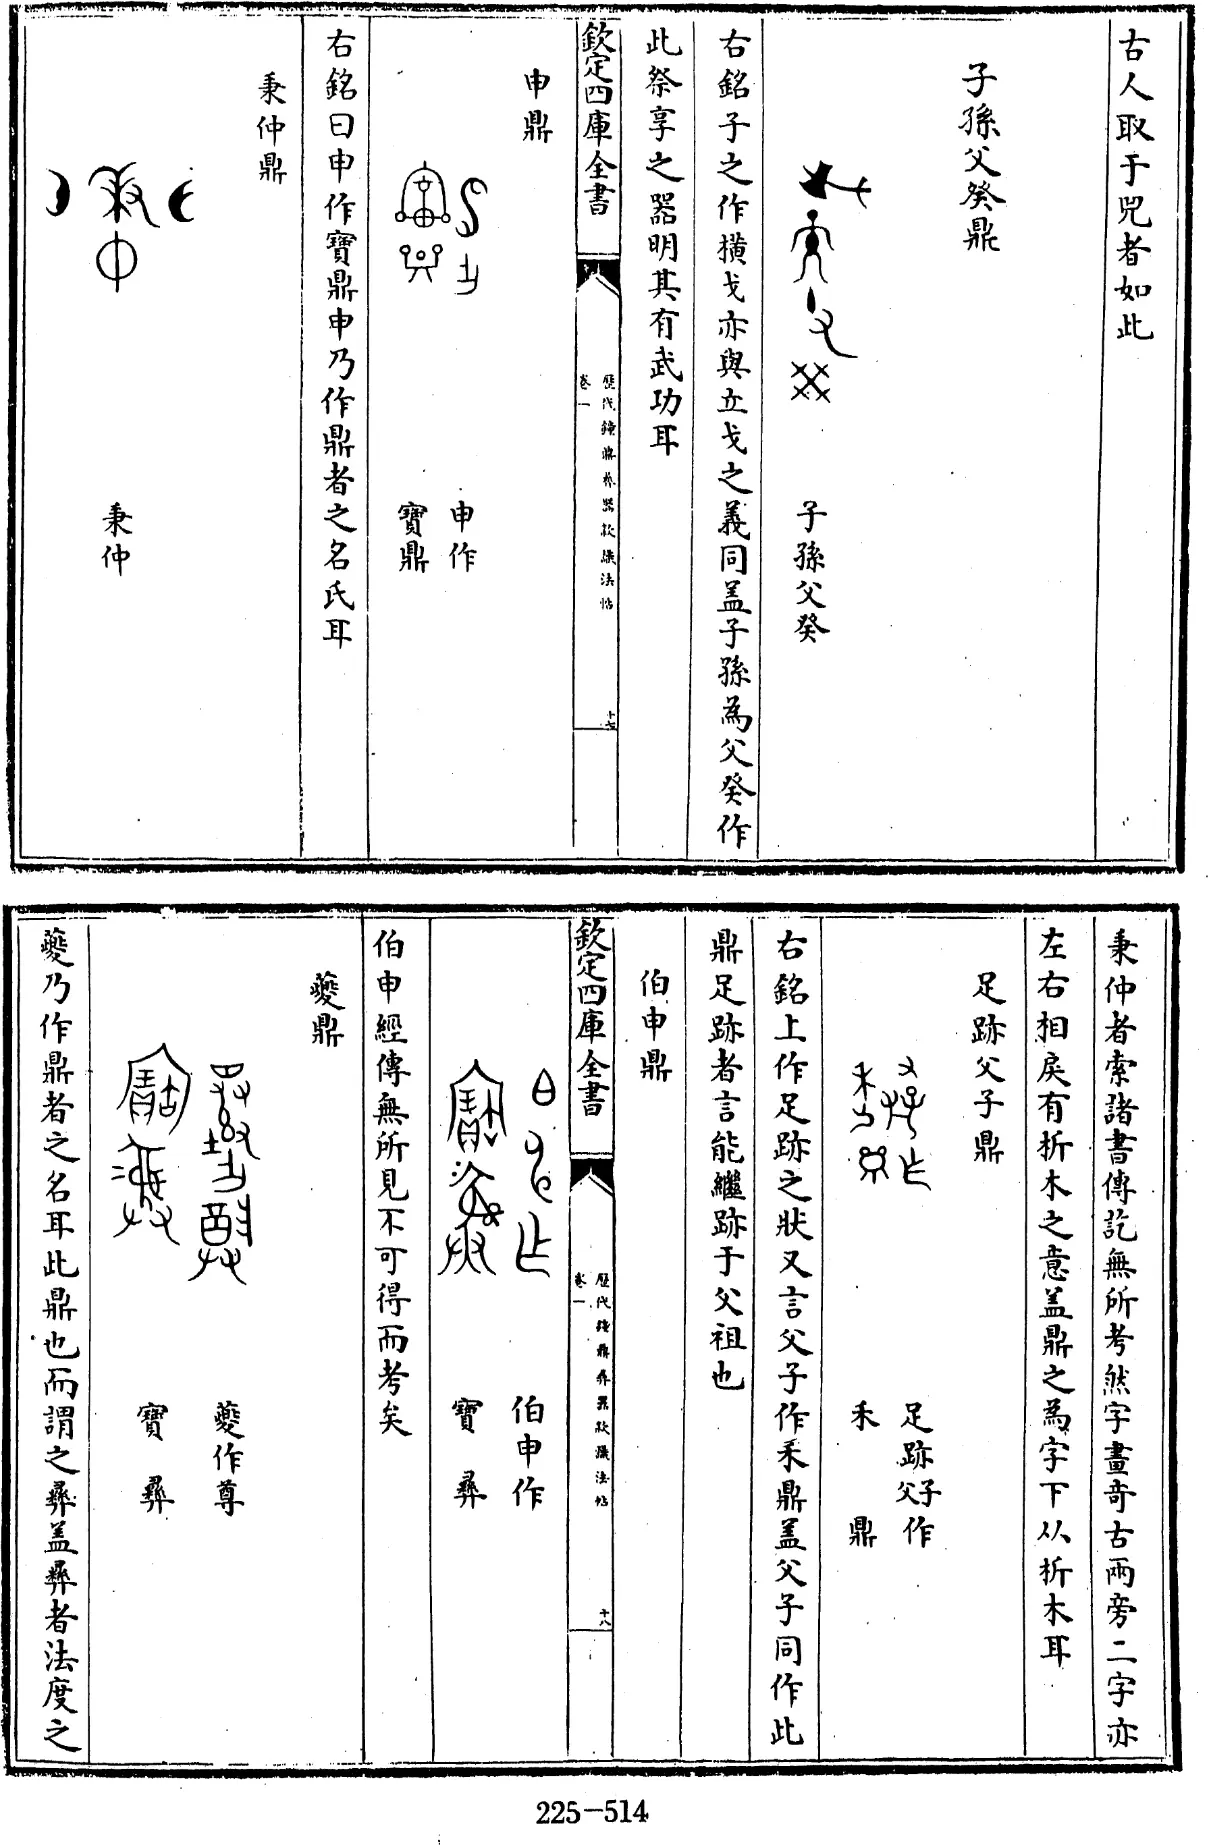 古人取于兕者如此
子孫父癸鼎
子孫父癸
右銘子之作橫戈亦與立戈之義同盖子孫為父癸作
此祭享之器明其有武功耳
欽定四庫全書
歷代鐘鼎彝器款識法帖
卷一
十七
申鼎
申作
寶鼎
右銘曰申作寶鼎申乃作鼎者之名氏耳
秉仲鼎
秉仲
秉仲者索諸書傳訖無所考然字畫奇古兩旁二字亦
左右相戾有析木之意盖鼎之為字下从析木耳
足跡父子鼎
足跡父子作
禾鼎
右銘上作足跡之狀又言父子作禾鼎盖父子同作此
鼎足跡者言能繼跡于父祖也
伯申鼎
欽定四庫全書
歷代鐘鼎彝器款識法帖
卷一
十八
伯申作
寶彝
伯申經傳無所見不可得而考矣
夔鼎
夔作尊
寶彝
夔乃作鼎者之名耳此鼎也而謂之彝盖彝者法度之
225-514